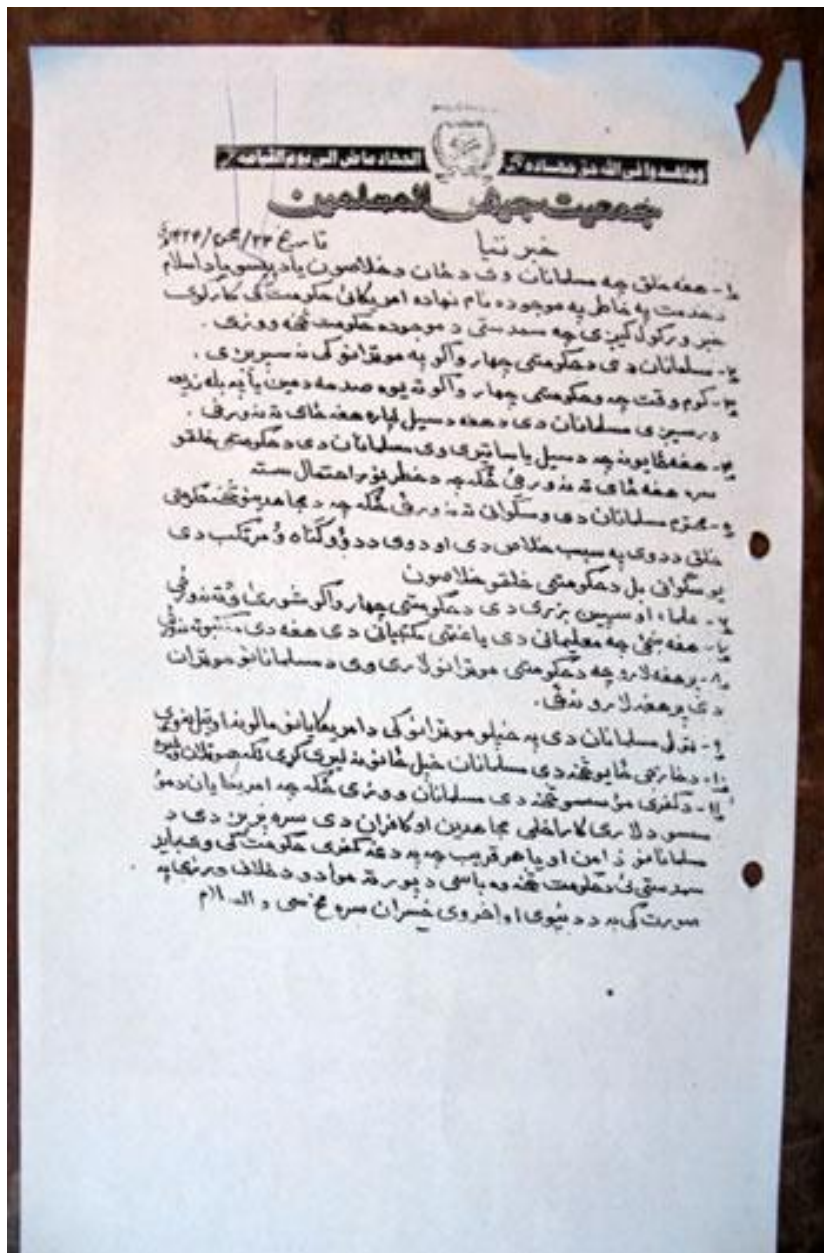 وجاهدوا في الله حق جهاده الجهاد ماض الى يوم القيامة
جمعیت جیش المسلمین
خبرتیا تاریخ ۲۳/ /۱۴۲۴
۱- هغه خلق چه مسلمانان وی د ځان د خلاصون یا د پیسو یا د اسلام
د خدمت په خاطر په موجوده نام نهاده امریکائی حکومت کی کار کوی
خبر ورکول کیږی چه سمدستی د موجوده حکومت څخه ووزی.
۲- مسلمانان دی د حکومتی چهارواکو په موټرانو کی نه سپریږی.
۳- کوم وقت چه وحکومتی چهارواکو ته یوه صدمه د مین یا په بله ذریعه
ورسیږی مسلمانان دی د هغه د سیل لپاره هغه ځای ته نه ورځی.
۴- هغه ځایونه چه د سیل یا ساتیری وی مسلمانان دی د حکومتی خلقو
سره هغه ځای ته نه ورځی ځکه چه د خطر ډیر احتمال سته
۵- محترم مسلمانان دی وسکوانی ته نه ورځی ځکه چه د مجاهدینو څخه حکومتی
خلق ددوی په سبب خلاص دی او دوی د دوو گناه ؤ مرتکب دی
یو سکوانی بل د حکومتی خلقو خلاصون
۶- علماء او سپین ږیری دی د حکومتی چهارواکو شوری ګانو ته نه ورځی
۷- هغه چه معلمانی دی یا غټی مکتبیانی دی هغه دی مکتبو ته نه ورځی
۸- پر هغه لارو چه د حکومتی موټرانو لاری وی د مسلمانانو موټران
دی پر هغه لارو نه ځی.
۹- ټولی مسلمانان دی په خپلو موټرانو کی د امریکایانو مالونه او تیل نه وړی
۱۰- د خارجی ځایو څخه دی مسلمانان خپل ځانونه لیری کوی لکه هوټلان
۱۱- د کفری مؤسسو څخه دی مسلمانان ووزی ځکه چه امریکایان د مؤ
سسو د لاری کار اخلی مجاهدین او کافران دی سره بزین دی د
مسلمانانو د امن او یا هر قریب چه په دغه کفری حکومت کی وی باید
سمدستی ئی د حکومت څخه وه باسی د پورته موادو د خلاف ورزی په
صورت کی به د دنیوی او اخروی خسران سره مخ سی و السلام